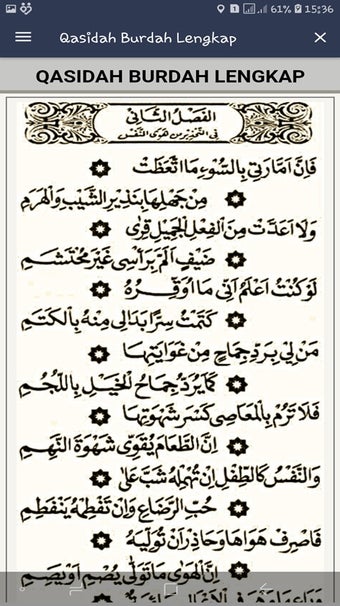 61% 15:36
Qasidah Burdah Lengkap
QASIDAH BURDAH LENGKAP
الفصل الثاني
في التحذير من هوى النفس
فَإِنَّ أَمَّارَتِي بِالسُّوءِ مَا اتَّعَظَتْ
مِنْ جَهْلِهَا بِنَذِيرِ الشَّيْبِ وَالْهَرَمِ
وَلَا أَعَدَّتْ مِنَ الْفِعْلِ الْجَمِيلِ قِرَى
ضَيْفٍ أَلَمَّ بِرَأْسِي غَيْرَ مُحْتَشَمِ
لَوْ كُنْتُ أَعْلَمُ أَنِّي مَا أُوَقِّرُهُ
كَتَمْتُ سِرًّا بَدَالِي مِنْهُ بِالْكَتَمِ
مَنْ لِي بِرَدِّ جِمَاحٍ مِنْ غَوَايَتِهَا
كَمَا يُرَدُّ جِمَاحُ الْخَيْلِ بِاللُّجُمِ
فَلَا تَرُمْ بِالْمَعَاصِي كَسْرَ شَهْوَتِهَا
إِنَّ الطَّعَامَ يُقَوِّي شَهْوَةَ النَّهِمِ
وَالنَّفْسُ كَالطِّفْلِ إِنْ تُهْمِلْهُ شَبَّ عَلَى
حُبِّ الرَّضَاعِ وَإِنْ تَفْطِمْهُ يَنْفَطِمِ
فَاصْرِفْ هَوَاهَا وَحَاذِرْ أَنْ تُوَلِّيَهُ
إِنَّ الْهَوَى مَا تَوَلَّى يُصْمِ أَوْ يَصِمِ